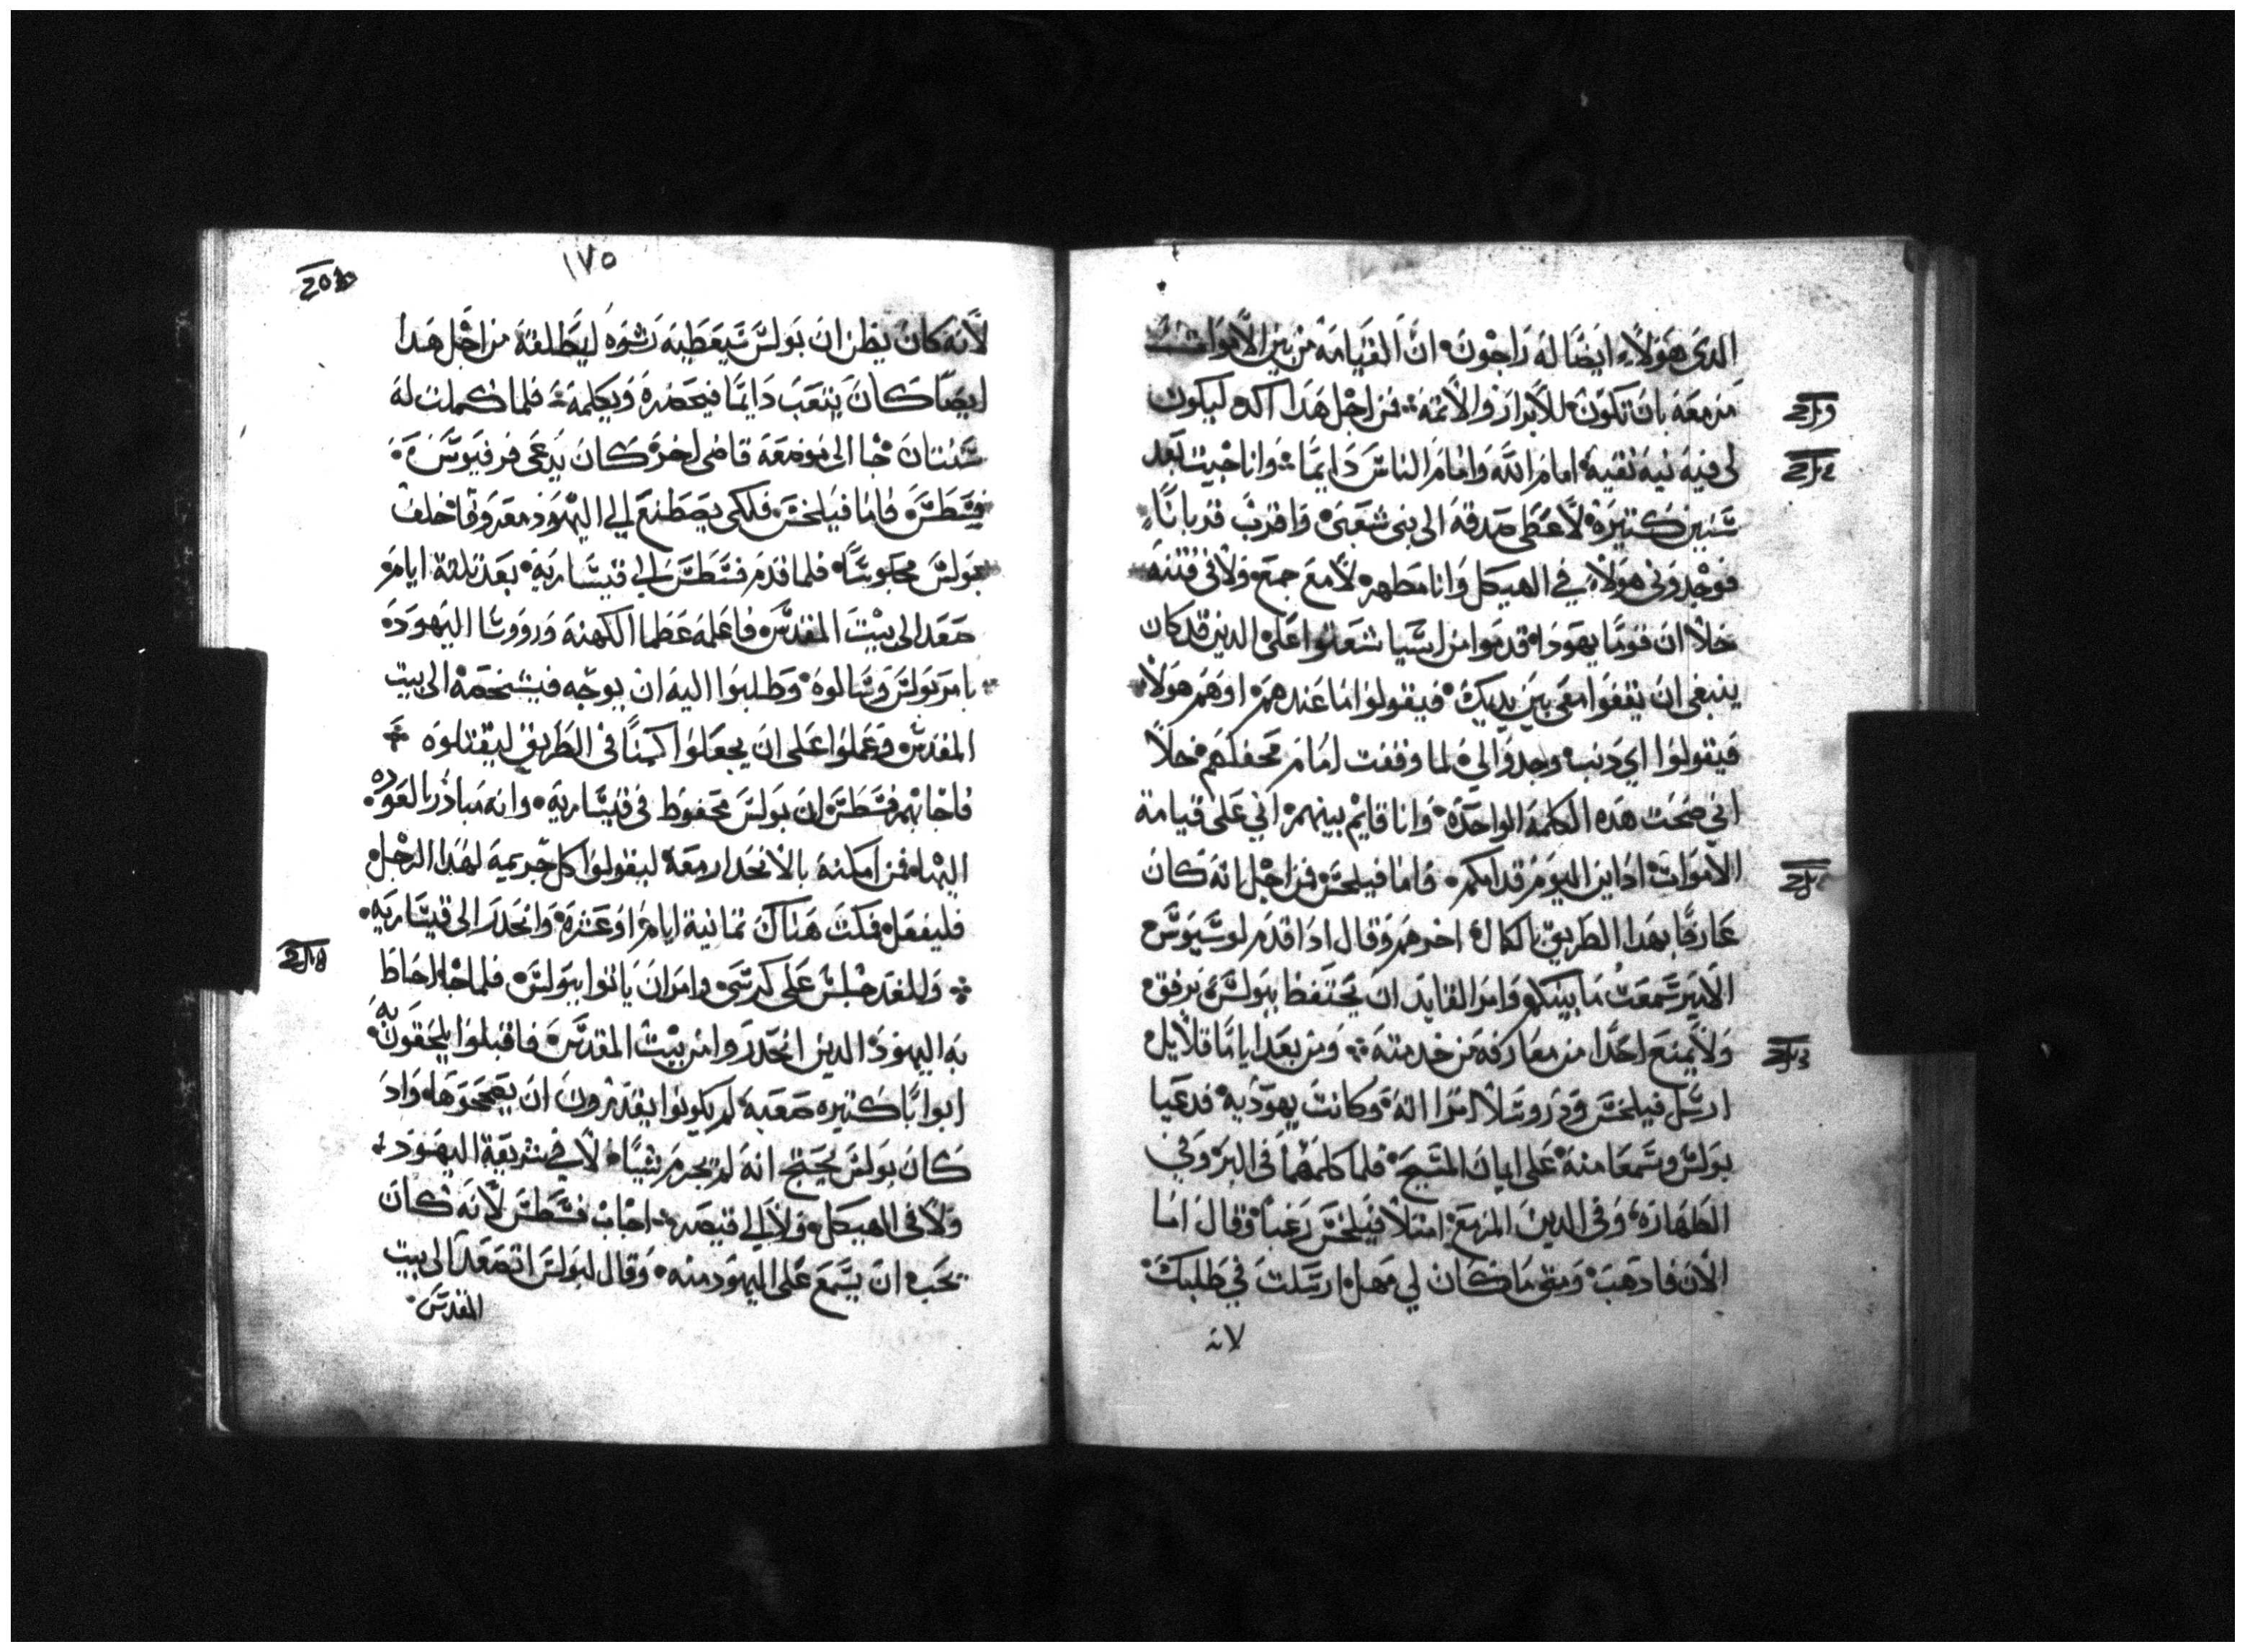 الدى هولاء ايضا له راجون ان القيامة من بين الاموات
مزمعة بان تكون للابرار والاثمة فمن اجل هدا اكد ليكون
لى فيه نيه نقيه امام الله وامام الناس دايما وانا جيت بعد
سنين كتيرة لاعطى صدقه الى بنى شعبى واقرب قربانا
فوجدونى هولاء في الهيكل وانا مطهر لا مع جمع ولا فى فتنه
خلا ان قوما يهودا قدموا من اسيا شعتوا على الدين قد كان
ينبغى ان يقفوا معى بين يديك فيقولوا ما عندهم او هم هولا
فيقولوا اي دنب وجدوا لي لما وقفت امام محفلهم خلا
انى صحت هده الكلمة الواحدة وانا قايم بينهم اني على قيامة
الاموات ادان اليوم قدامكم فاما فيلخس فمن اجل انه كان
عارفا بهدا الطريق بالكمال اخرهم وقال ادا قدم لوسيوس
الامير سمعت ما بينكم وامر القايد ان يحتفظ ببولس برفق
ولا يمنع احدا من معارفه من خدمته ومن بعد اياما قلايل
ارسل فيلخس ودروسلا امراته وكانت يهودية فدعيا
بولس وسمعا منه على ايمان المسيح فلما كلمهما فى البر وفي
الطهارة وفى الدين المزمع امتلا فيلخس رعبا وقال اما
الان فادهب ومتى ما كان لي مهل ارسلت في طلبك
لانه
١٧٥
لانه كان يظن ان بولس سيعطيه رشوه ليطلقه من اجل هدا
ايضا كان يبعت دايما فيحضره ويكلمه فلما كملت له
سنتان جا الى موضعه قاضى اخر كان يدعى فرفيوس
فسطس فاما فيلخس فلكى يصطنع الى اليهود معروفا خلف
بولس محبوسا فلما قدم فسطس الى قيساريه بعد تلتة ايام
صعد الى بيت المقدس فاعلمه عظما الكهنة وروسا اليهود
بامر بولس وسالوه وطلبوا اليه ان يوجه فيشخصه الى بيت
المقدس وعملوا على ان يجعلوا كمنا فى الطريق ليقتلوه
فاجابهم فسطس ان بولس محفوظ فى قيساريه وانه مبادر بالعوده
اليها فمن امكنه بالانحدار معه ليقولوا كل جريمة لهدا الرجل
فليفعل فمكت هناك تمانية ايام او عشرة وانحدر الى قيساريه
وللغد جلس على كرسى وامر ان ياتوا ببولس فلما جا احاط
به اليهود الدين انحدروا من بيت المقدس فاقبلوا يلحقون به
ابوابا كتيره صعبة لم يكونوا يقدرون ان يصححوها واد
كان بولس يحتج انه لم يجرم شيئا لا في شريعة اليهود
ولا فى الهيكل ولا الى قيصر اجاب فسطس لانه كان
يحب ان يسمع على اليهود منه وقال لبولس اتصعد الى بيت
المقدس